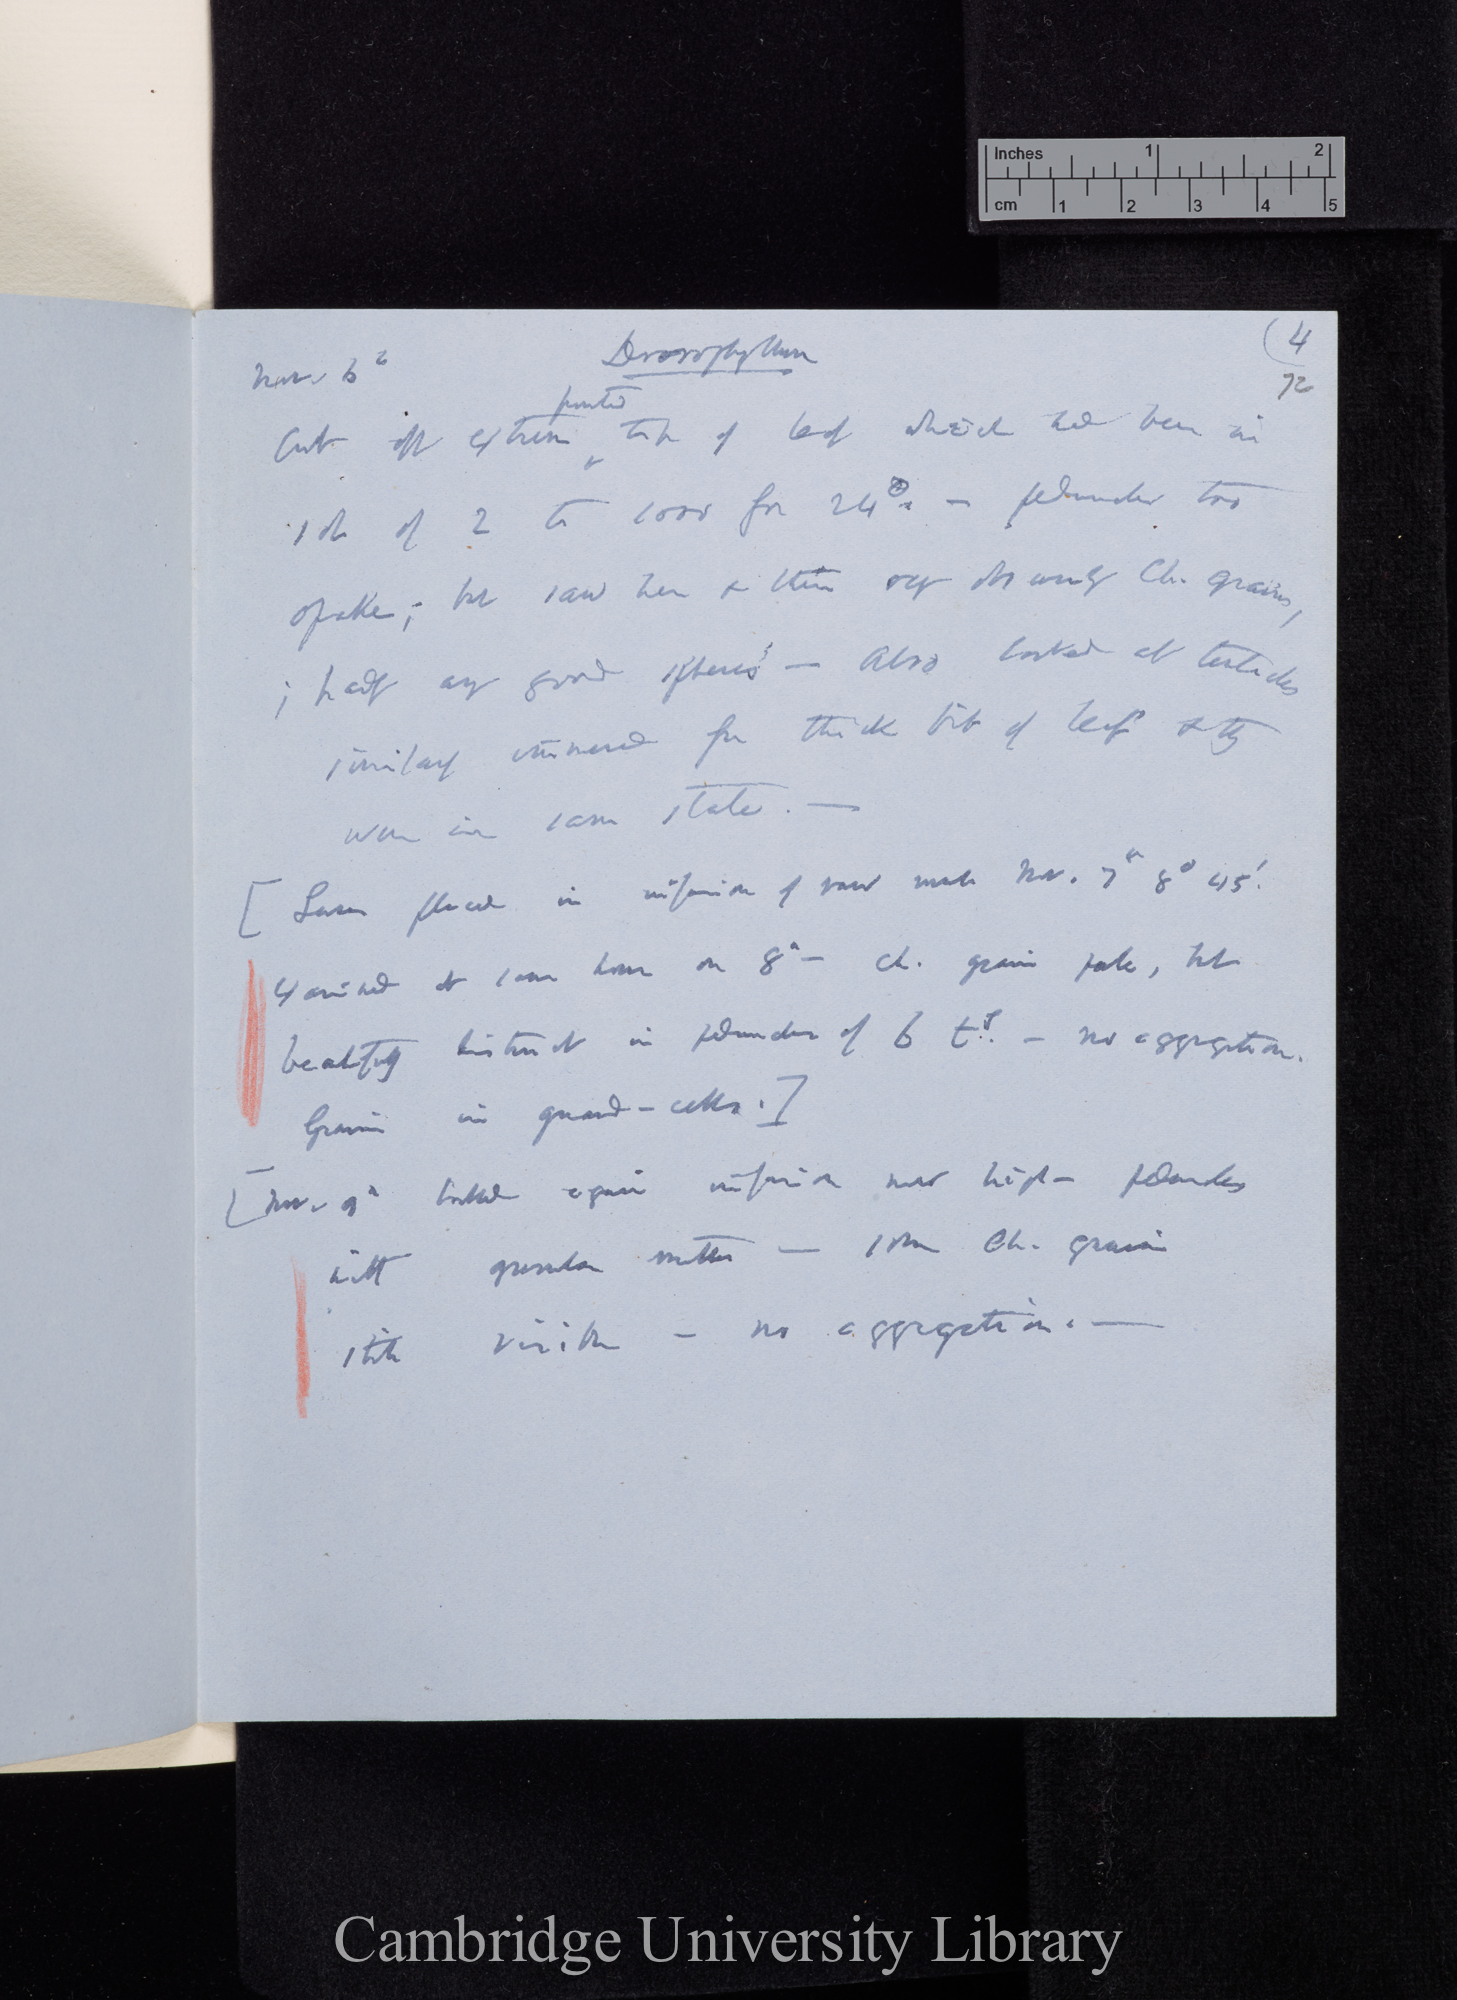 Inches 1 2
cm 1 2 3 4 5
Drosophyllum
(4
72
Nov. 6th
pointed
Cut off extreme tip of leaf which had been in
soln of 2 to 1000 for 24° — peduncles too
opake; but saw here & there Ch. grains,
; hardly any good spheres — Also looked at tentacles
similarly immersed for thick bit of leaf & they
were in same state. —
[Leaves placed in infusion of raw meat Nov. 7th 8° 45'.
examined at same hour on 8th — Ch. grains pale, but
beautifully distinct in peduncles of 6 t.s. — no aggregation.
Grains in guard-cells.]
[Nov. 9th looked again infusion now high — peduncles
with granular matter — some Ch. grains
still visible — no aggregation. —
Cambridge University Library